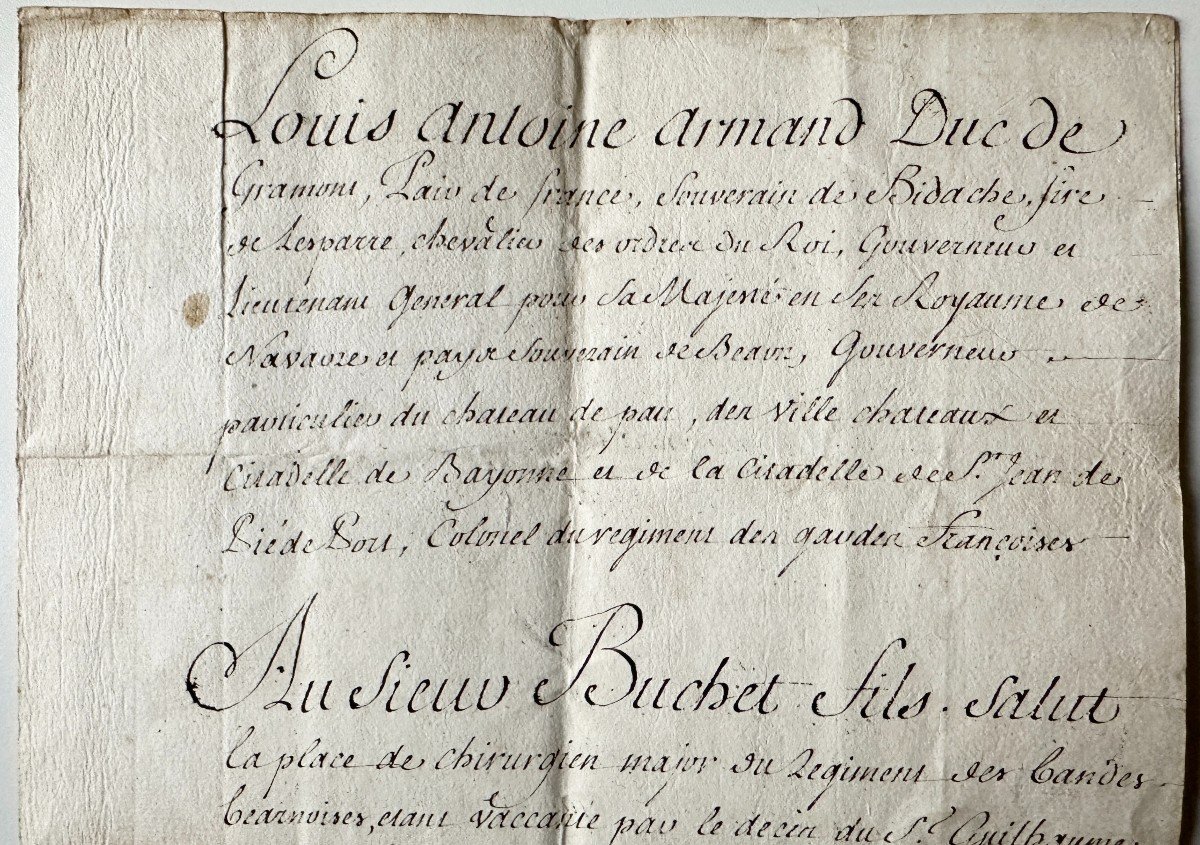 Louis Antoine Armand Duc de
Gramont, Pair de france, Souverain de Bidache, sire
de Lesparre, chevalier des ordres du Roi, Gouverneur et
Lieutenant General pour Sa Majesté en Ses Royaume de
Navarre et pays Souverain de Bearn, Gouverneur
particulier du chateau de pau, des ville chateaux et
Citadelle de Bayonne et de la citadelle de St. Jean de
Pié de Port, Colonel du regiment des gardes Françoises
Au Sieur Buchet fils. Salut
la place de chirurgien major du Regiment des bandes
bearnoises, etant vaccante par le decès du Sr. Guilhaume